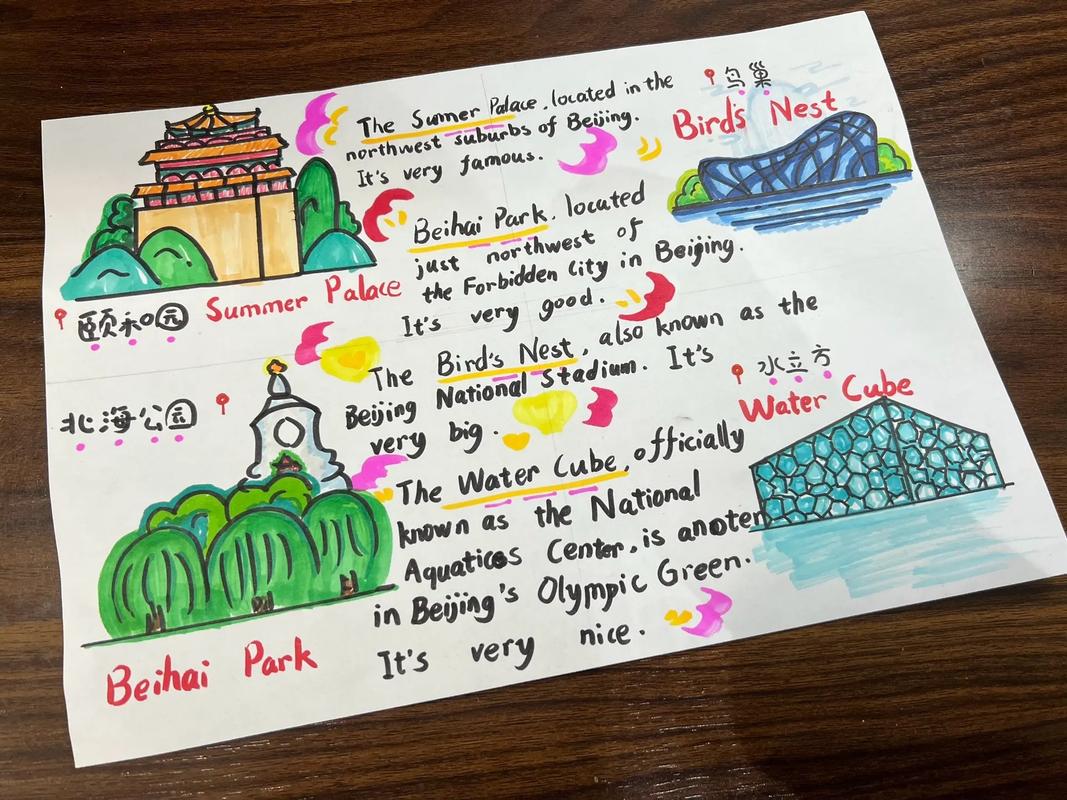 The Sumer Palace, located in the
northwest suburbs of Beijing.
It's very famous.
鸟巢
Bird's Nest
Beihai Park, located
just northwest of
the Forbidden City in Beijing.
It's very good.
颐和园
Summer Palace
The Bird's Nest, also known as the
Beijing National Stadium. It's
very big.
北海公园
水立方
Water Cube
The Water Cube, officially
known as the National
Aquaticos Center, is anoter
in Beijing's Olympic Green.
It's very nice.
Beihai Park